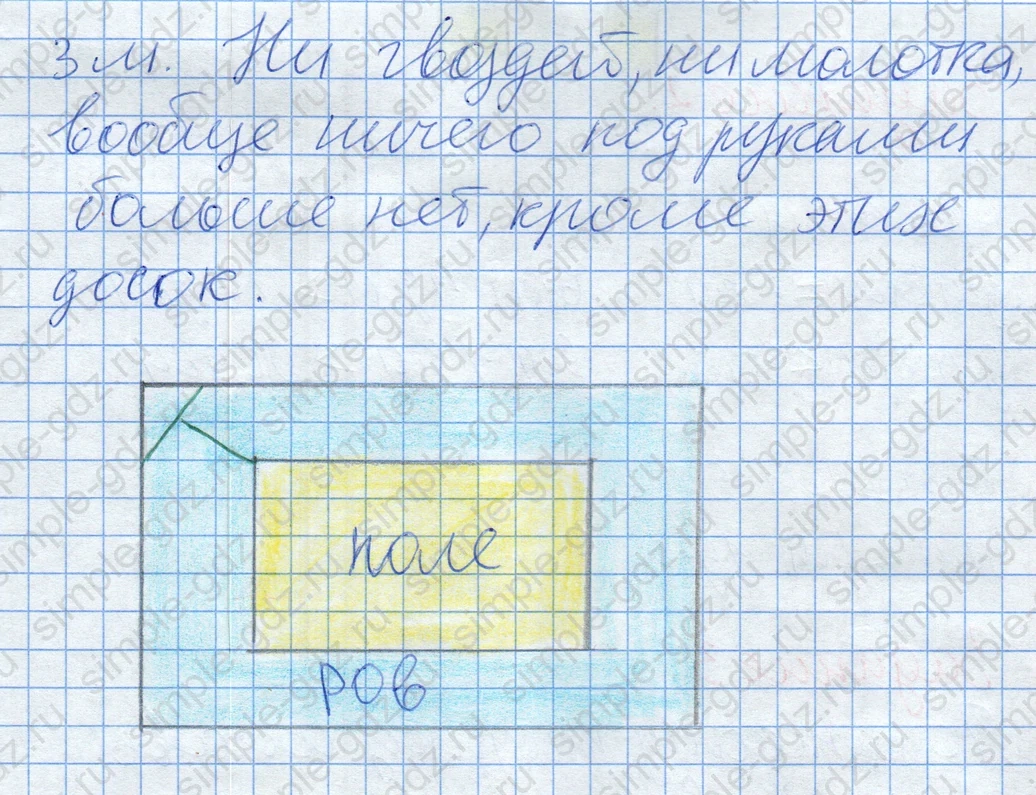 3 м. Ни гвоздей, ни молотка,
вообще ничего под руками
больше нет, кроме этих
досок.
поле
ров
simple-gdz.ru